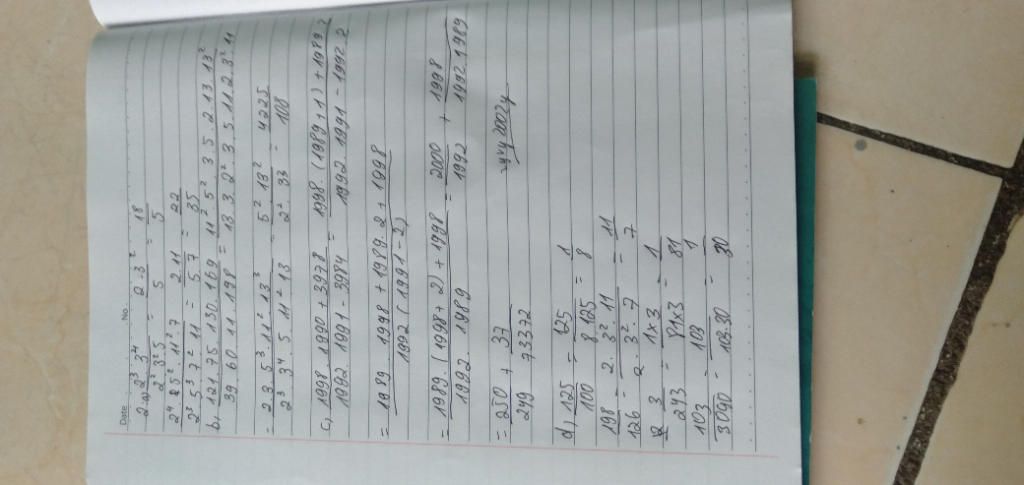 Date No.
2. a, 2³ 3⁴ / 2² 3² 5 = 2·3² / 5 = 18 / 5
2⁴ 5² 11² 7 / 2³ 5³ 7² 11 = 2 11 / 5 7 = 22 / 35
b, 121. 75. 130. 169 / 39 60 11 198 = 11² 5² 3 5. 2. 13. 13² / 13 3. 2² 3. 5. 11. 2. 3² 11
= 2 3 5³ 11² 13³ / 2³ 3⁴ 5 11² 13 = 5² 13² / 2² 33 = 4225 / 108
c, 1998. 1990 + 3978 / 1992. 1991 - 3984 = 1998 (1989 + 1) + 1989. 2 / 1992. 1991 - 1992 2
= 1989. 1998 + 1989. 2 + 1998 / 1992 (1991 - 2)
= 1989. (1998 + 2) + 1998 / 1992. 1989 = 2000 / 1992 + 1998 / 1992. 1989
= 250 / 249 + 37
d, 125 / = 125 / 8.125 = 1 / 8
198 / 126 = 2. 3² 11 / 2. 3². 7 = 11 / 7
3 / 243 = 1×3 / 81×3 = 1 / 81
103 / 3090 = 103 / 103.30 = 1 / 30